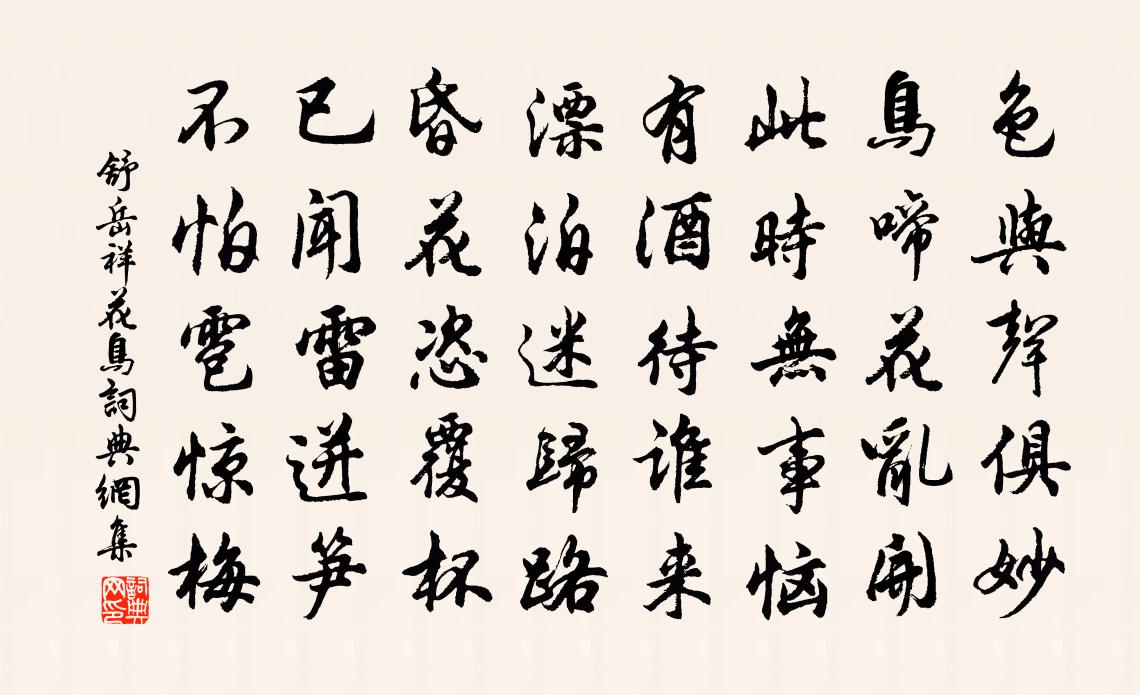 色與聲俱妙
鳥啼花亂開
此時無事惱
有酒待誰来
漂泊迷歸路
昏花恣覆杯
已闻雷迸笋
不怕雹惊梅
舒岳祥花鳥詞典網集
詞典网印